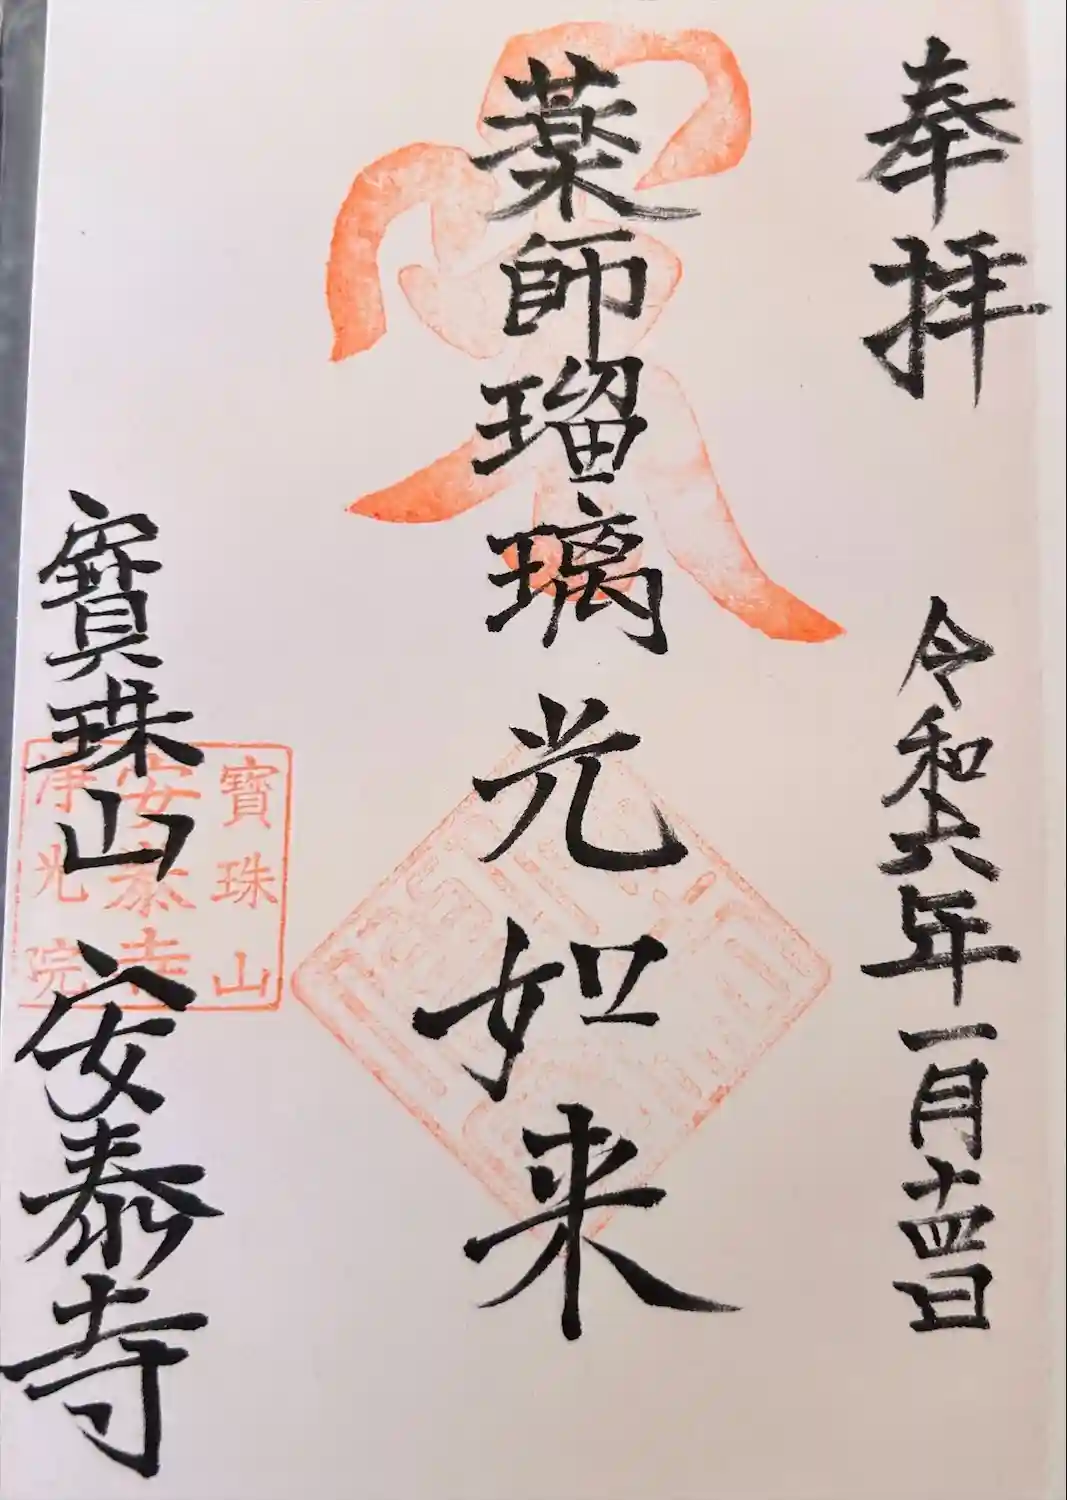 奉拝
令和六年一月十四日
薬師瑠璃光如来
寶珠山
安泰寺
寶珠山
安泰寺
浄光院